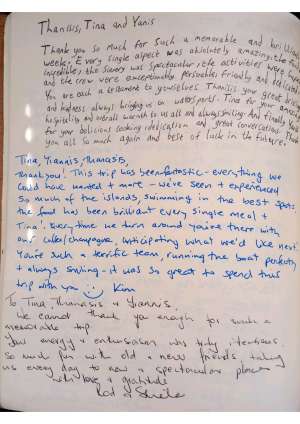 Thanasis, Tina and Yanis
Thank you so much for such a memorable and brilliant
week. Every single aspect was absolutely amazing, the food
incredible, the scenery was spectacular, the activities were
and the crew were exceptionally personable, friendly and dedicated.
You are each a testament to yourselves. Thanasis your great
and kindness always bringing us on watersports. Tina for your amazing
hospitality and overall warmth to us all and always smiling. And finally Yanis
for your delicious cooking, dedication and great conversations. Thank
you all so much again and best of luck in the future.
Tina, Yiannis, Thanasis,
Thank you! This trip has been fantastic - everything we
could have wanted + more - we've seen + experienced
so much of the islands, swimming in the best spots
the food has been brilliant every single meal +
Tina! Every time we turn around you're there with
our coffee/champagne, anticipating what we'd like next.
You're such a terrific team, running the boat perfectly
+ always smiling - it was so great to spend this
trip with you Kim
To Tina, Thanasis & Yiannis,
We cannot thank you enough for such a
memorable trip
Your energy & enthusiasm was truly
So much fun with old & new friends, taking
us every day to new & spectacular places
with love & gratitude
Rod & Sheila